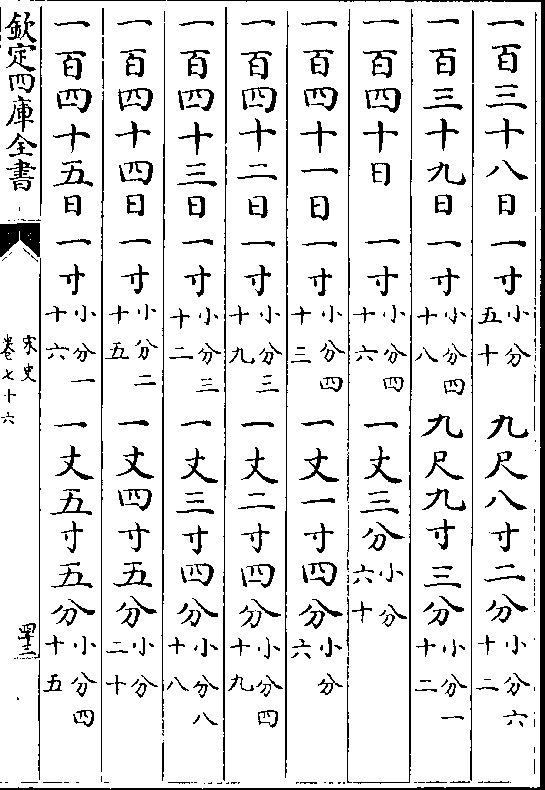 一百三十八日 一寸小分五十 九尺八寸二分小分六十二
一百三十九日 一寸小分四十八 九尺九寸三分小分一十二
一百四十日 一寸小分四十六 一丈三分小分六十
一百四十一日 一寸小分四十三 一丈一寸四分小分六
一百四十二日 一寸小分三十九 一丈二寸四分小分四十九
一百四十三日 一寸小分三十二 一丈三寸四分小分八十八
一百四十四日 一寸小分二十五 一丈四寸五分小分二十
一百四十五日 一寸小分一十六 一丈五寸五分小分四十五
欽定四庫全書
宋史
卷七十六